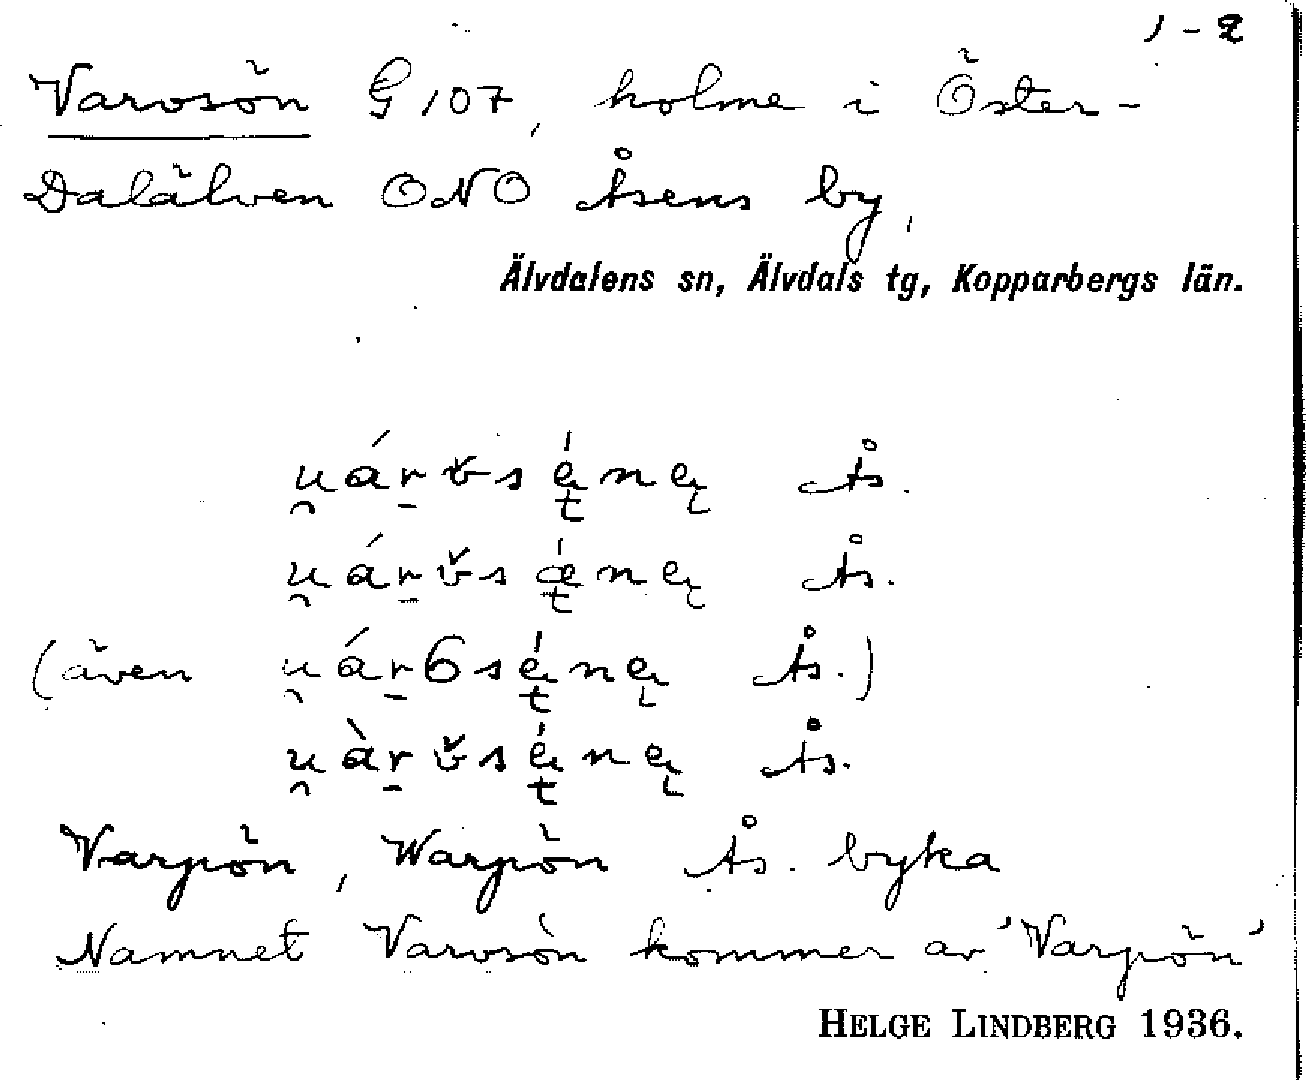 1-2
Varvsön G 107, holme i Öster-
Dalälven ONO Åsens by,
Älvdalens sn, Älvdals tg, Kopparbergs län.
Ås.
Ås.
(även Ås.)
Ås.
Varpön, Warpön Ås. byka
Namnet Varvsön kommer av 'Varpön'
HELGE LINDBERG 1936.